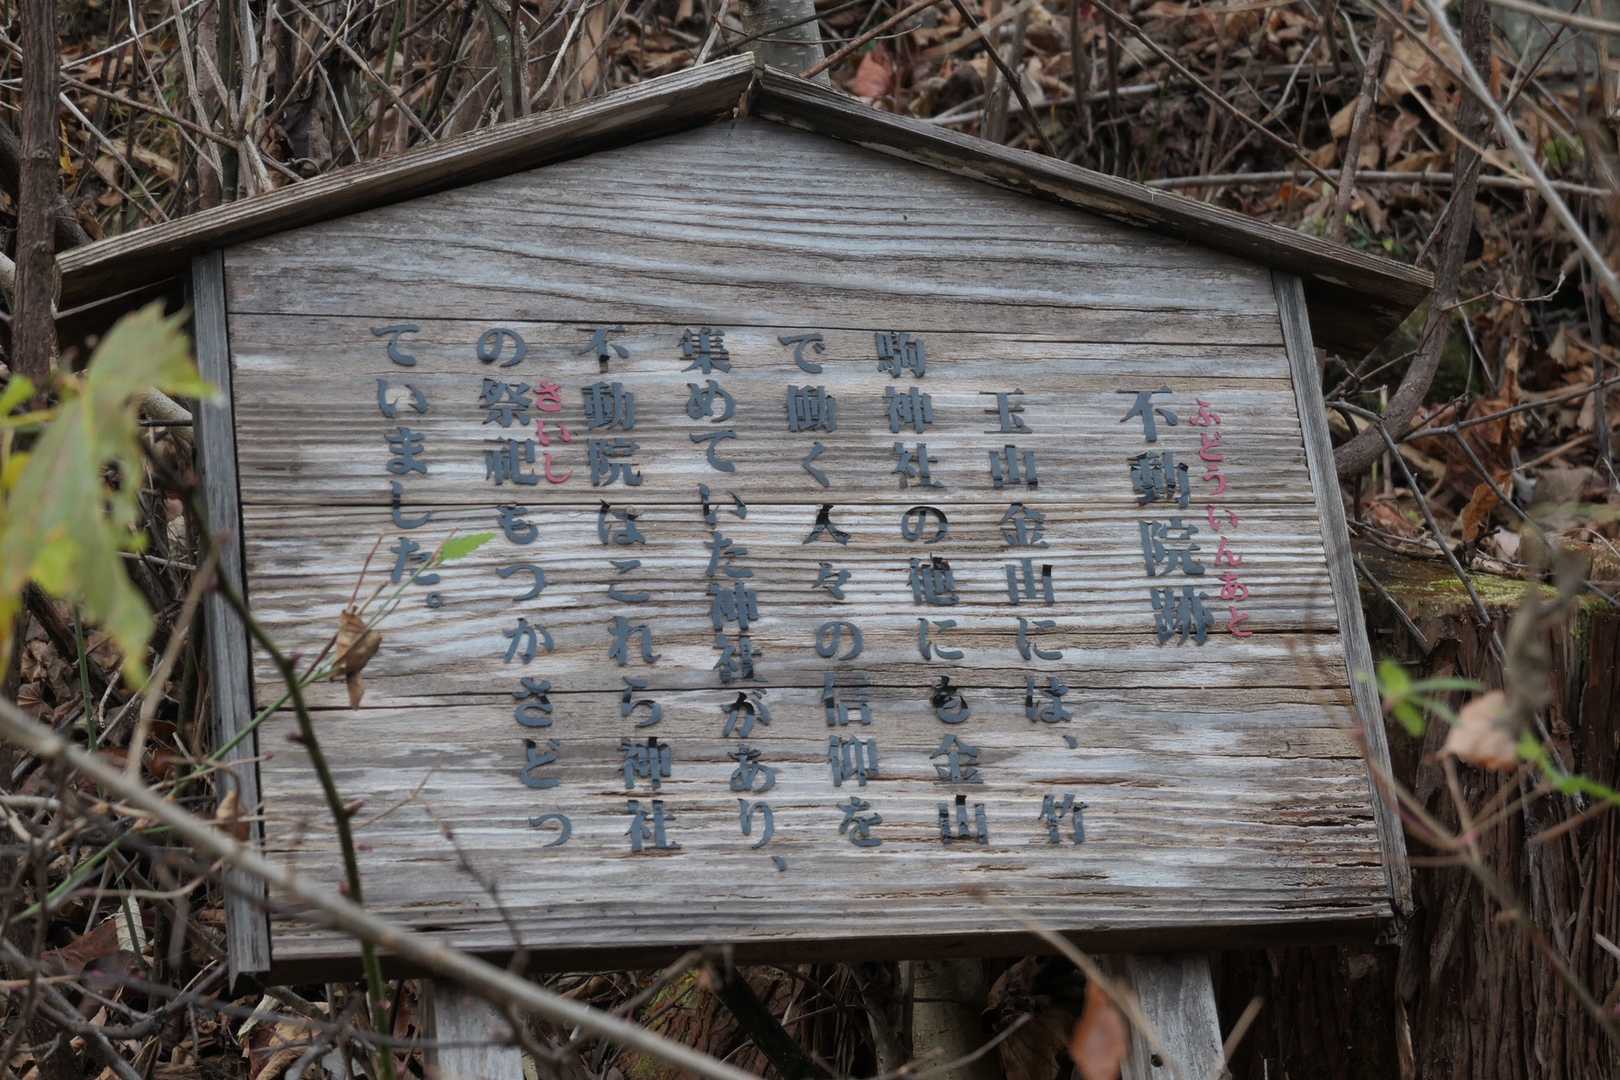 ふどういんあと
不動院跡
玉山金山には、竹
駒神社の他にも金山
で働く人々の信仰を
集めていた神社があり、
不動院はこれら神社
さいし
の祭祀もつかさどっ
ていました。